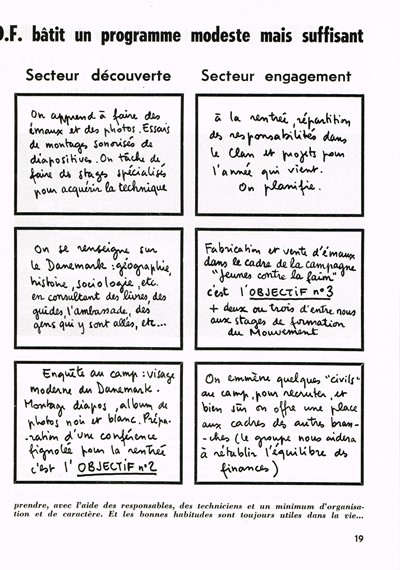 O.F. bâtit un programme modeste mais suffisant
Secteur découverte
On apprend à faire des
émaux et des photos. Essais
de montages sonorisés de
diapositives. On tâche de
faire des stages spécialisés
pour acquérir la technique
On se renseigne sur
le Danemark : géographie,
histoire, sociologie, etc.
en consultant des livres, des
guides, l'ambassade, des
gens qui y sont allés, etc...
Enquête au camp : visage
moderne du Danemark.
Montage diapos, album de
photos noir et blanc. Prépa-
-ration d'une conférence
fignolée pour la rentrée
c'est l'OBJECTIF n°2
Secteur engagement
à la rentrée, répartition
des responsabilités dans
le Clan et projets pour
l'année qui vient.
On planifie.
Fabrication et vente d'émaux
dans le cadre de la campagne
"Jeunes contre la faim"
c'est l'OBJECTIF n°3
+ deux ou trois d'entre nous
aux stages de formation
du Mouvement
On emmène quelques "civils"
au camp, pour recruter, et
bien sûr on offre une place
aux cadres des autres bran-
-ches (le groupe nous aidera
à rétablir l'équilibre des
finances)
prendre, avec l'aide des responsables, des techniciens et un minimum d'organisa-
tion et de caractère. Et les bonnes habitudes sont toujours utiles dans la vie...
19